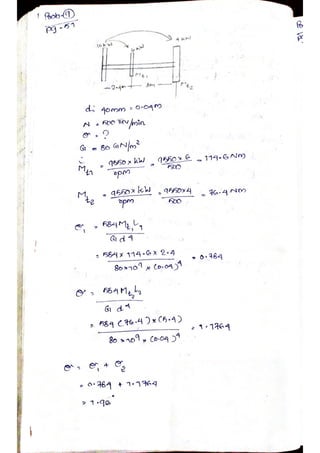 Prob-(9)
pg-57
10 kW
6 kW
4 kW
Mt1
Mt2
2.4m
3m
d: 40mm = 0.04m
N = 500 rev/min
θ = ?
G = 80 GN/m²
Mt1 = 9550 x kW / rpm = 9550 x 6 / 500 = 114.6 Nm
Mt2 = 9550 x kW / rpm = 9550 x 4 / 500 = 76.4 Nm
θ1 = 584 Mt1 L1 / G d⁴
= 584 x 114.6 x 2.4 / 80 x 10⁹ x (0.04)⁴ = 0.784
θ = 584 Mt2 L2 / G d⁴
= 584 (76.4) x (5.4) / 80 x 10⁹ x (0.04)⁴ = 1.1764
θ = θ1 + θ2
= 0.784 + 1.1764
= 1.96°